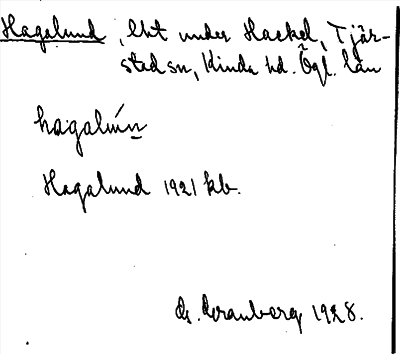 Hagalund, lht under Hackel, Tjär-
stad sn, Kinda hd. Ögl. län
hagalún
Hagalund 1921 kb.
G. Granberg 1928.